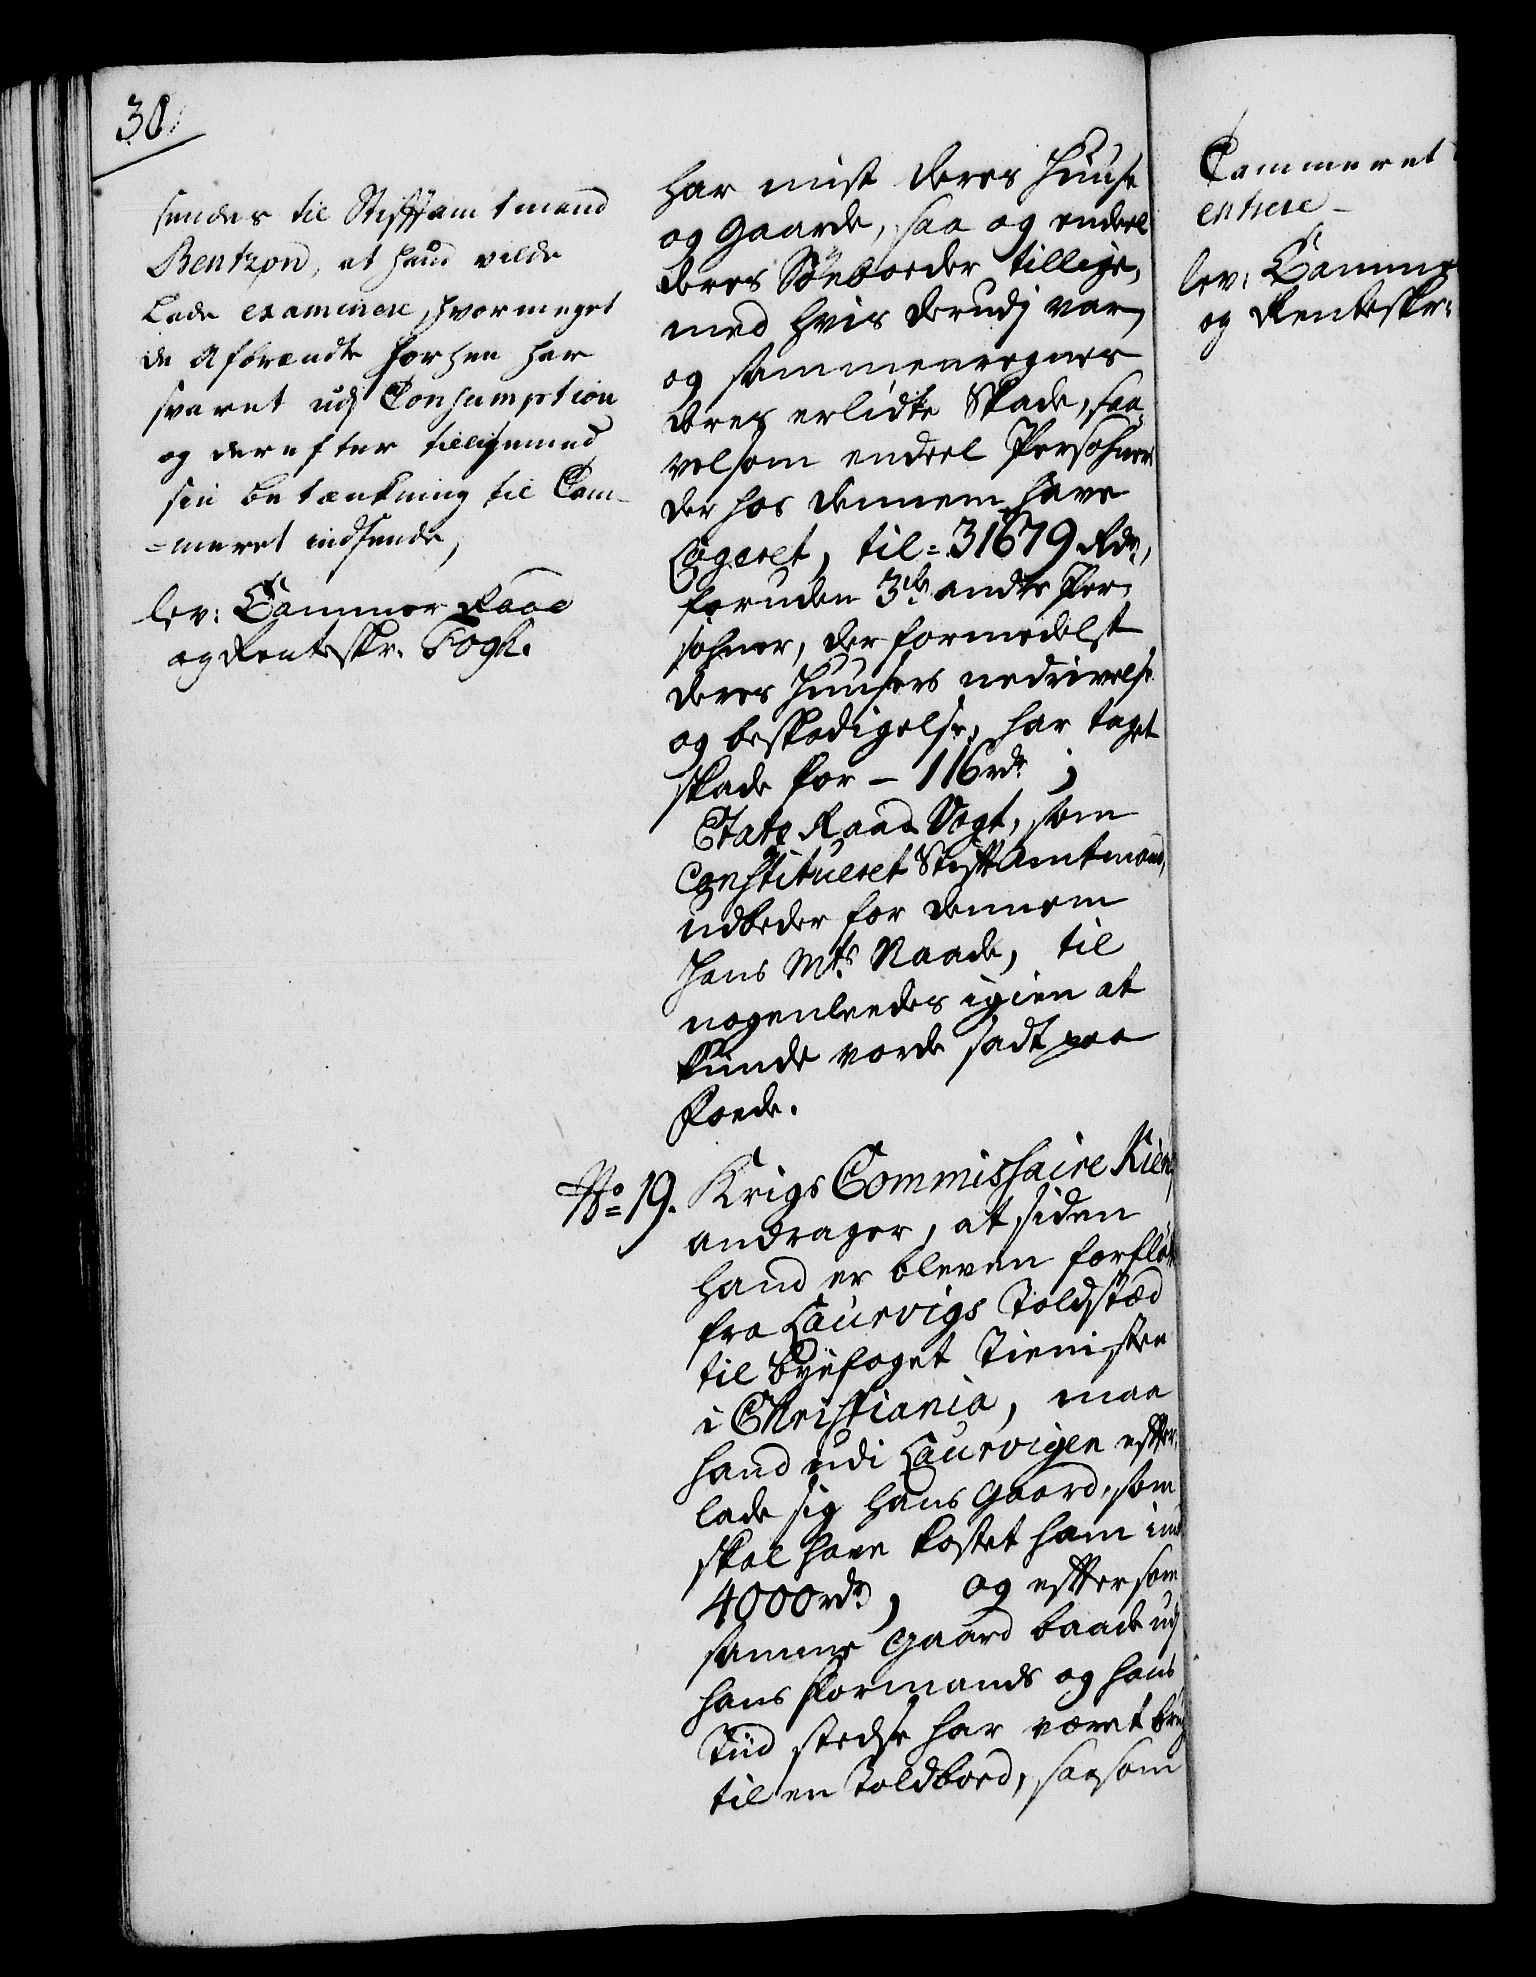 30
sendes til Stifftamtmand
Bentzon, at hand vilde
Lade examinere, hvormeget
de Afbrændte forhen har
svaret udj Consumption
og derefter tilligemed
sin betænkning til Cam-
-meret indsende,
lev: Cammer Raae
og Renteskr. Fogh.
har mist deres Huuse
og Gaarde, saa og endeel
deres Söeboeder tillige,
med hvis derudj var,
og sammenregnes
deres erlidte Skade, saa
velsom endeel Persohner
der hos dennem have
Logeret, til = 31679 Rdr,
foruden 3de andre Per-
sohner, der formedelst
deres Huusers nedrivelse
og beskadigelse, har taget
skade for - 116 rdr ;
Etats Raad Vogt, som
Constitueret Stifftamtmand,
udbeder for dennem
Hans Mts Naade, til
nogenleedes igien at
kunde vorde sadt paa
Foede.
No 19. Krigs Commissaire
andrager, at siden
hand er bleven forflöt
fra Laurvigs Toldstæd
til Byefoget Tienisten
i Christiania, maa
hand udi Laurvigen effter-
lade sig hans Gaard, som
skal have kostet ham
4000 rdr, og efftersom
samme Gaard baade udj
hans Formands og hans
Tiid stedse har været brug
til en Toldboed, saasom
Cammeret
lev: Cammer
og Renteskr: